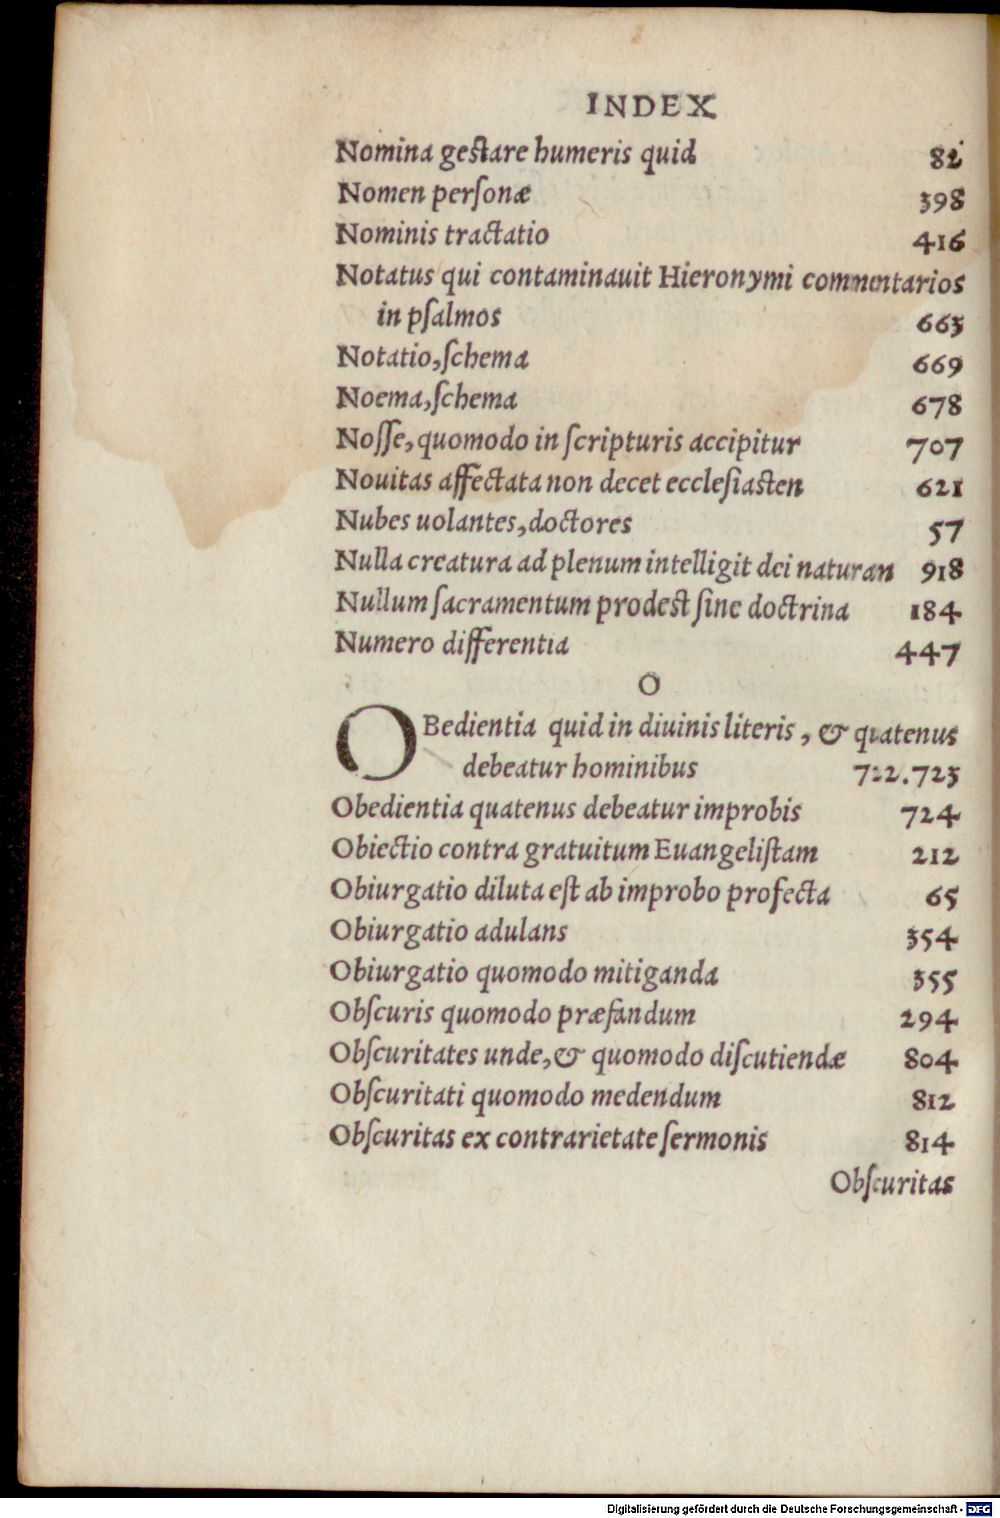 INDEX
Nomina gestare humeris quid 82
Nomen personæ 398
Nominis tractatio 416
Notatus qui contaminauit Hieronymi commentarios
in psalmos 663
Notatio, schema 669
Noema, schema 678
Nosse, quomodo in scripturis accipitur 707
Nouitas affectata non decet ecclesiasten 621
Nubes uolantes, doctores 57
Nulla creatura ad plenum intelligit dei naturan 918
Nullum sacramentum prodest sine doctrina 184
Numero differentia 447
O
OBedientia quid in diuinis literis, & quatenus
debeatur hominibus 722.723
Obedientia quatenus debeatur improbis 724
Obiectio contra gratuitum Euangelistam 212
Obiurgatio diluta est ab improbo profecta 65
Obiurgatio adulans 354
Obiurgatio quomodo mitiganda 355
Obscuris quomodo præfandum 294
Obscuritates unde, & quomodo discutiendæ 804
Obscuritati quomodo medendum 812
Obscuritas ex contrarietate sermonis 814
Obscuritas
Digitalisierung gefördert durch die Deutsche Forschungsgemeinschaft - DFG